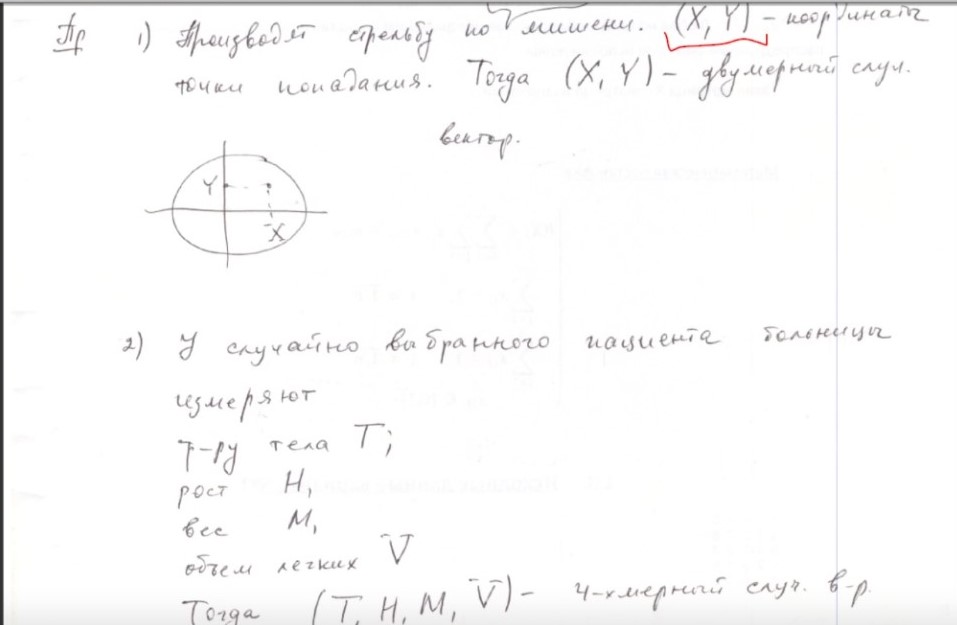 Пр 1) Производят стрельбу по мишени. (X, Y) – координаты
точки попадания. Тогда (X, Y) – двумерный случ.
вектор.
Y
X
2) У случайно выбранного пациента больницы
измеряют
т-ру тела T;
рост H,
вес M,
объем легких V
Тогда (T, H, M, V) – 4-хмерный случ. в-р.